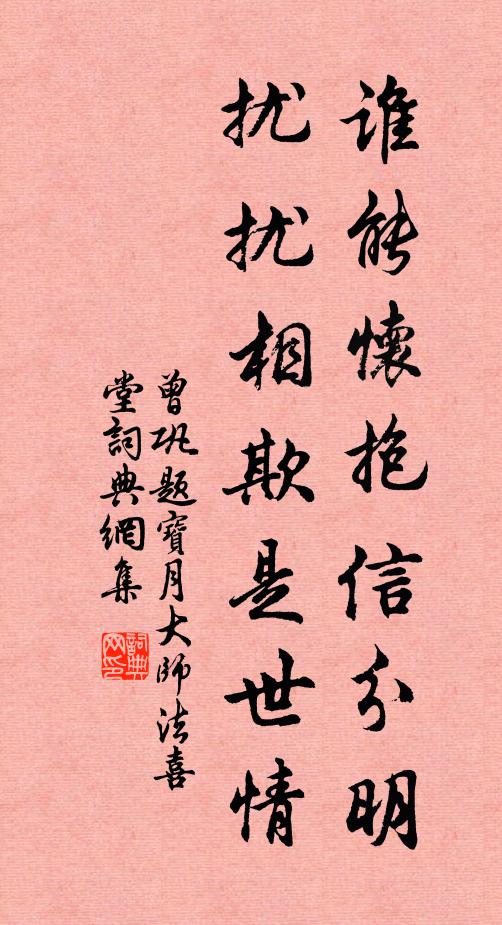 谁能懷抱信分明
扰扰相欺是世情
曾巩题寶月大师法喜
堂詞典網集
詞典网印